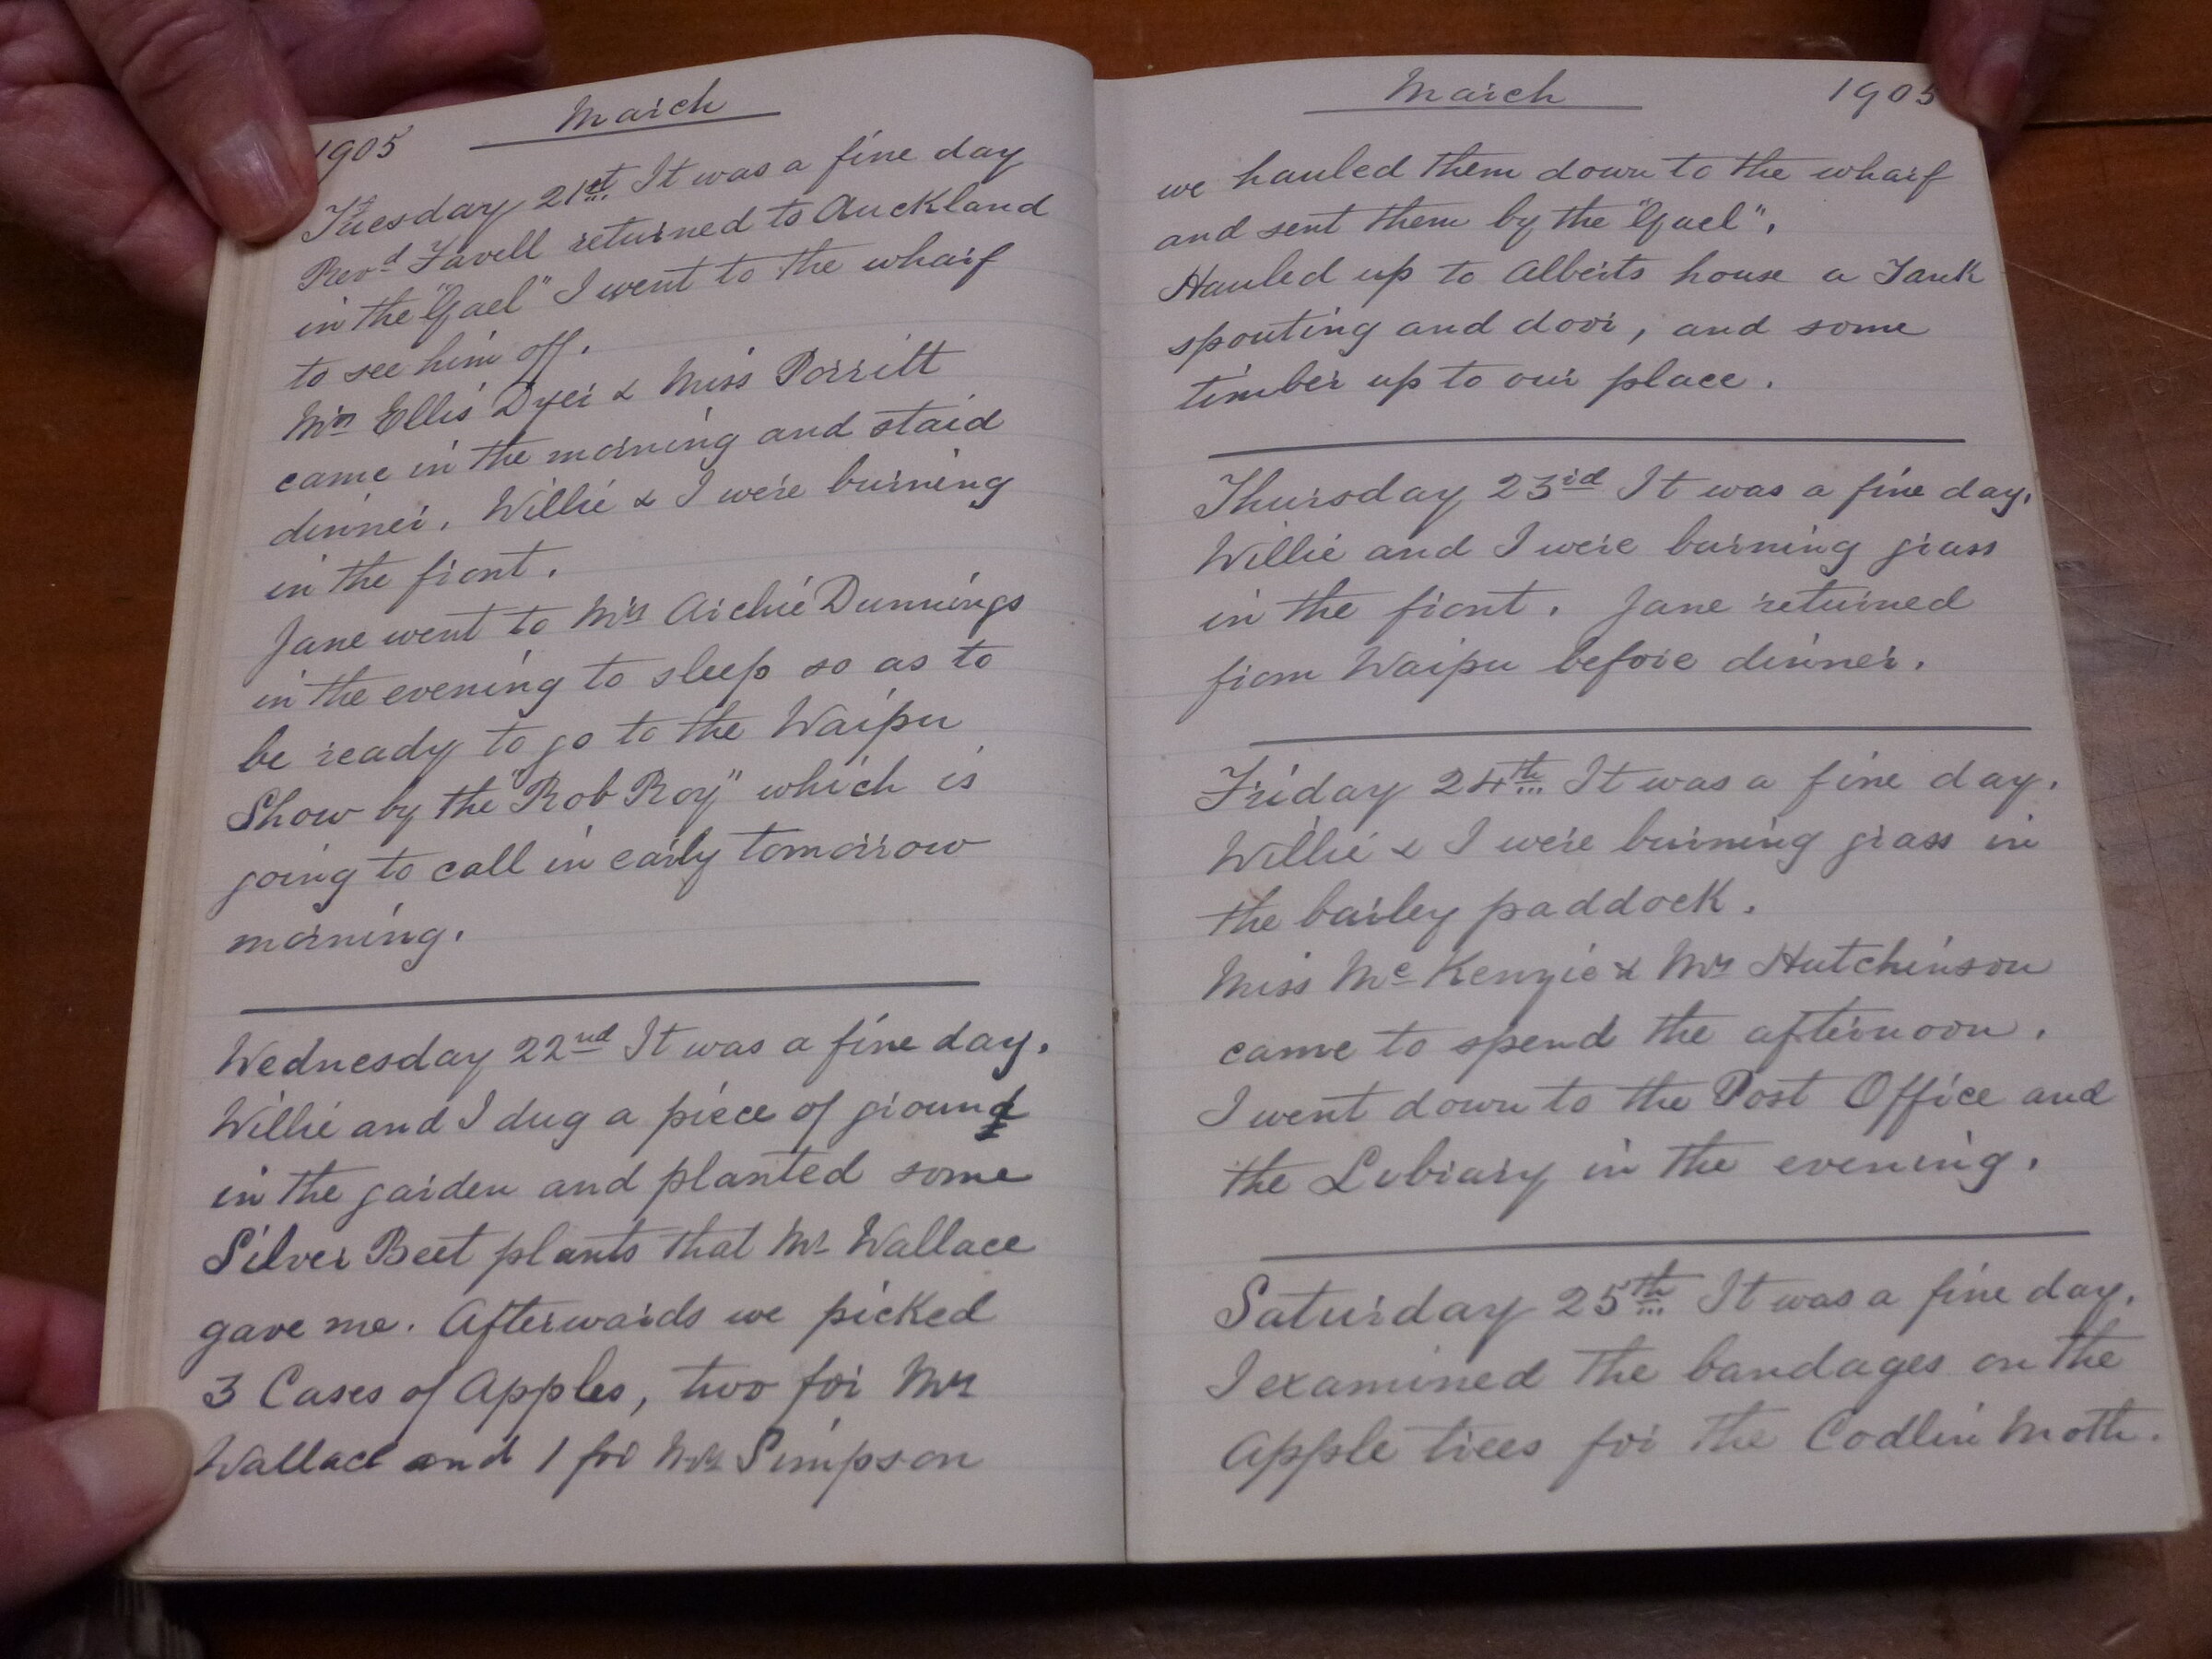 1905 March
Tuesday 21st It was a fine day
Revd Favell returned to Auckland
in the "Gael" I went to the wharf
to see him off.
Mrs Ellis Dyer & Miss Porritt
came in the morning and staid
dinner. Willie & I were burning
in the front.
Jane went to Mrs Archie Dunnings
in the evening to sleep so as to
be ready to go to the Waipu
Show by the "Rob Roy" which is
going to call in early tomorrow
morning.
Wednesday 22nd It was a fine day.
Willie and I dug a piece of ground
in the garden and planted some
Silver Beet plants that Mr Wallace
gave me. Afterwards we picked
3 Cases of Apples, two for Mrs
Wallace and 1 for Mrs Simpson
March 1905
we hauled them down to the wharf
and sent them by the "Gael".
Hauled up to Alberts house a Tank
spouting and door, and some
timber up to our place.
Thursday 23rd It was a fine day.
Willie and I were burning grass
in the front. Jane returned
from Waipu before dinner.
Friday 24th It was a fine day.
Willie & I were burning grass in
the barley paddock.
Miss McKenzie & Mrs Hutchinson
came to spend the afternoon.
I went down to the Post Office and
the Lubrary in the evening.
Saturday 25th It was a fine day.
I examined the bandages on the
Apple trees for the Codlin Moth.